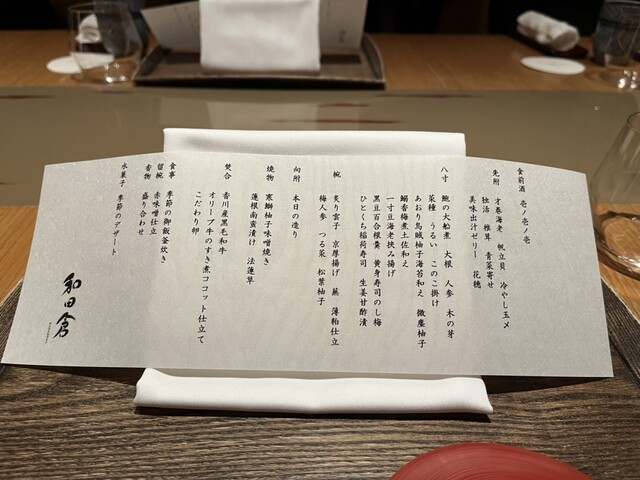 食前酒 壱ノ壱ノ壱
先附 才巻海老 帆立貝 冷やし玉〆
独活 椎茸 青菜寄せ
美味出汁ゼリー 花穂
八寸 鮑の大船煮 大根 人参 木の芽
菜種 うるい このこ掛け
あおり烏賊柚子海苔和え 微塵柚子
鰯香梅煮土佐和え
一寸豆海老挟み揚げ
黒豆百合根羹 黄身寿司のし梅
ひとくち稲荷寿司 生姜甘酢漬
椀 炙り雲子 京厚揚げ 蕪 薄粕仕立
梅人参 つる菜 松葉柚子
向附 本日の造り
焼物 寒鰤柚子味噌焼き
蓮根南蛮漬け 法蓮草
焚合 香川産黒毛和牛
オリーブ牛のすき煮ココット仕立て
こだわり卵
食事 季節の御飯釜炊き
留椀 赤味噌仕立
香物 盛り合わせ
水菓子 季節のデザート
和田倉